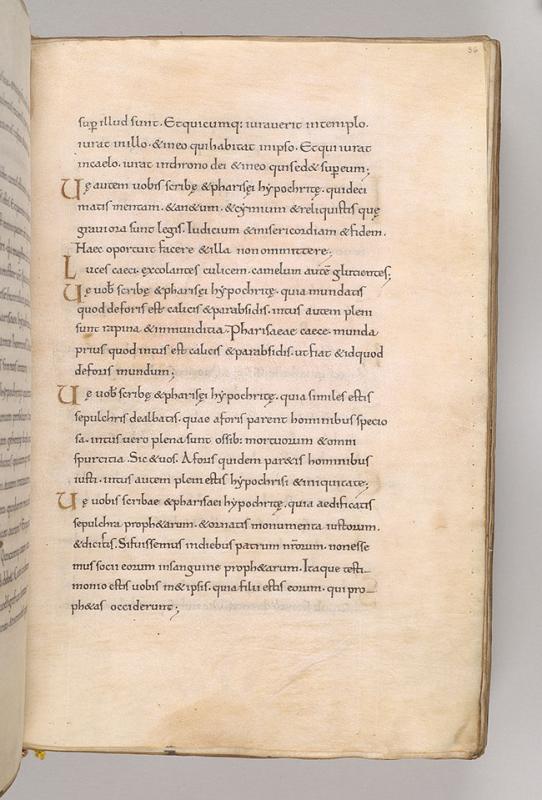 36
sup̄ illud sunt. Et quicumq; iuraverit in templo.
iurat in illo. & in eo qui habitat in ipso. Et qui iurat
in caelo. iurat in throno dei & in eo qui sed& sup̄ eum;
Uę autem uobis scribę & pharisęi hẏpochritę. qui deci
matis mentam. & an&um. & cẏminum & reliquistis quę
grauiora sunt legis. Iudicium & misericordiam & fidem.
Haec oportuit facere & illa non ommittere;
Luces caeci. excolantes culicem. camelum autē glutientes;
Uę uob̄ scribę & pharisęi hẏpochritę. quia mundatis
quod deforis est calicis & parabsidis. intus autem pleni
sunt rapina & inmunditia. Pharisaeae caece. munda
prius quod intus est calicis & parabsidis. ut fiat & id quod
deforis mundum;
Uę uob̄ scribę & pharisęi hẏpochritę. quia similes estis
sepulchris dealbatis. quae aforis parent hominibus specio
sa. intus uero plena sunt ossib; mortuorum & omni
spurcitia. Sic & uos. Aforis quidem par&is hominibus
iusti. intus autem pleni estis hẏpochrisi & iniquitate;
Uę uobis scribae & pharisaei hẏpochritę. quia aedificatis
sepulchra proph&arum. & ornatis monumenta iustorum.
& dicitis. Si fuissemus in diebus patrum nr̄orum. non esse
mus socii eorum in sanguine proph&arum. Itaque testi
monio estis uobis m& ipsis. quia filii estis eorum. qui pro
ph&as occiderunt;